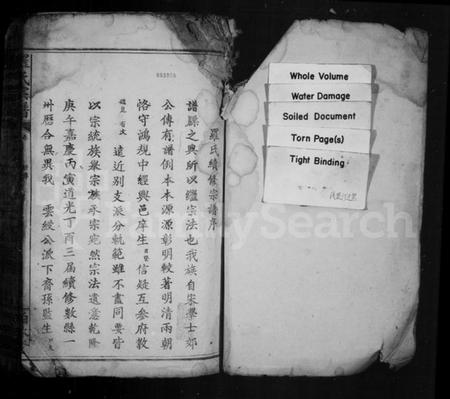 羅氏續修宗譜序
譜縣之興所以繼宗法也我族自宋學士郊
公傳有譜例本本源源彰明較著明清兩朝
恪守鴻規中經興邑庠生信疑互參府教
遠近別支派分軌範雖不盡同要皆
以宗統族舉宗族承宗宛然宗法遺意乾隆
庚午嘉慶丙寅道光丁酉三屆續修數縣一
卅歷合無異我 雲紋公派下裔孫監生
Whole Volume
Water Damage
Soiled Document
Torn Page(s)
Tight Binding
FamilySearch